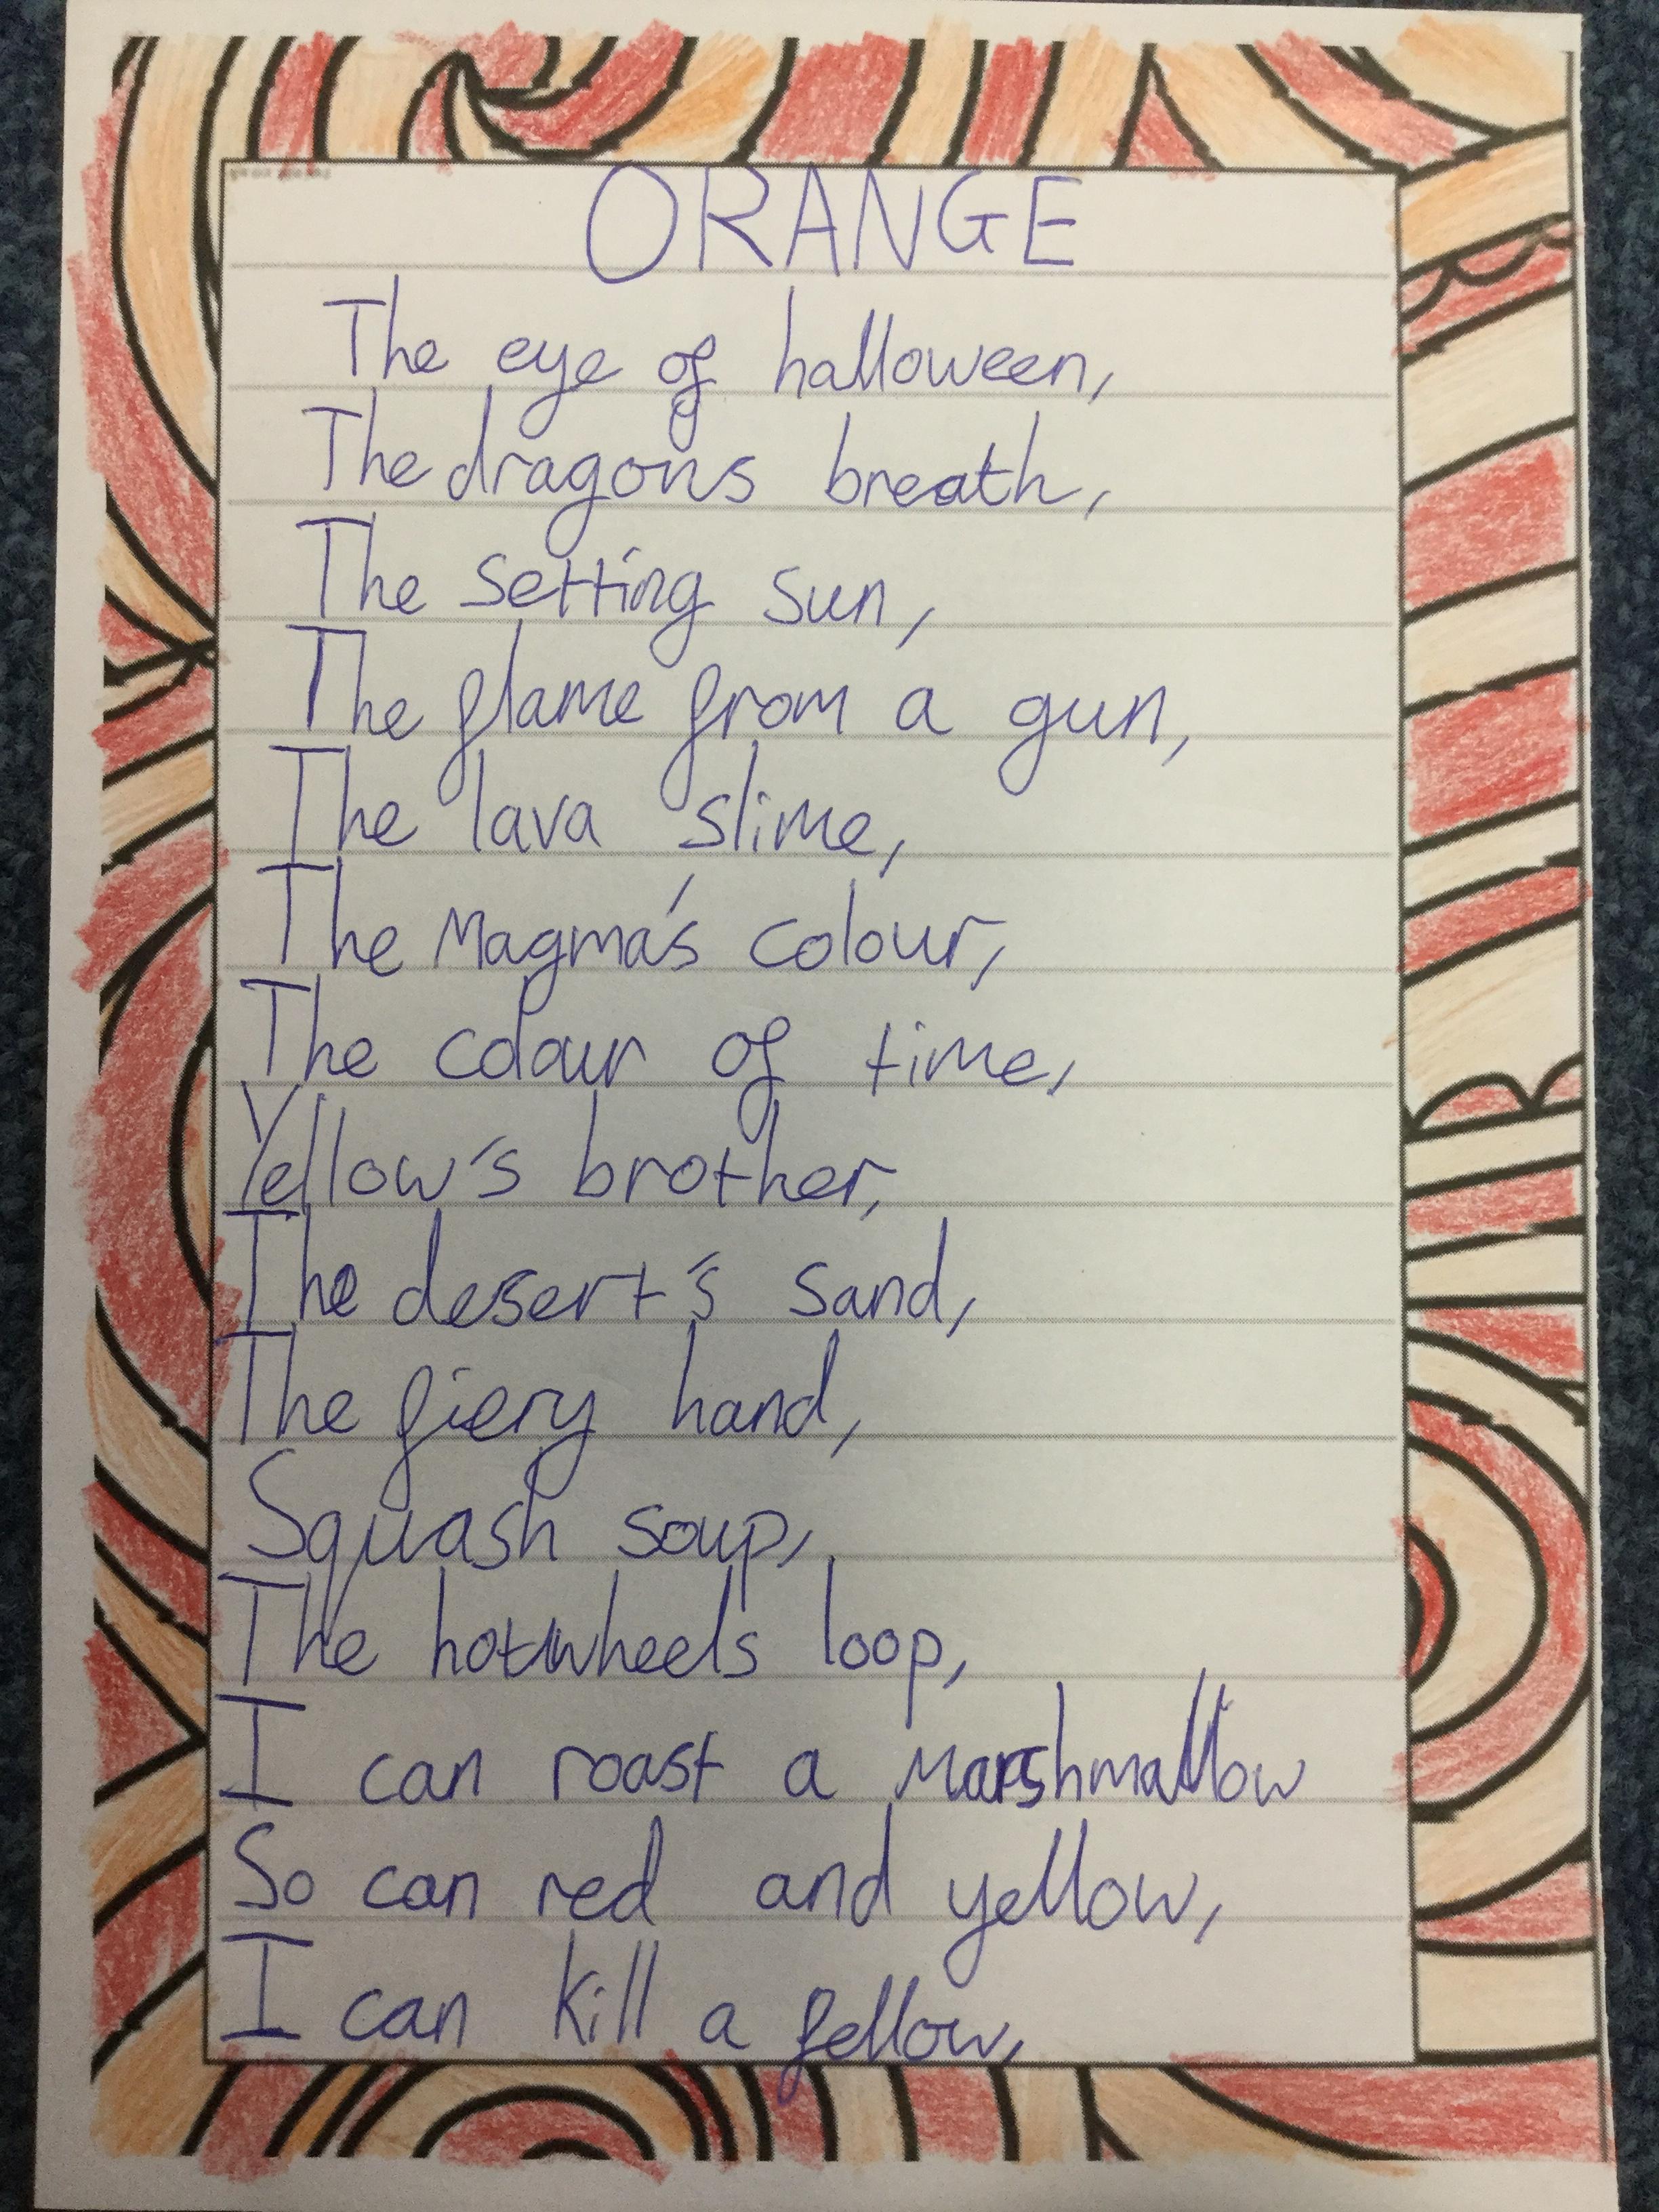 ORANGE
The eye of halloween,
The dragons breath,
The setting sun,
The flame from a gun,
The lava slime,
The Magma's colour,
The colour of time,
Yellow's brother,
The desert's sand,
The fiery hand,
Squash soup,
The hotwheels loop,
I can roast a Marshmallow
So can red and yellow,
I can kill a fellow,